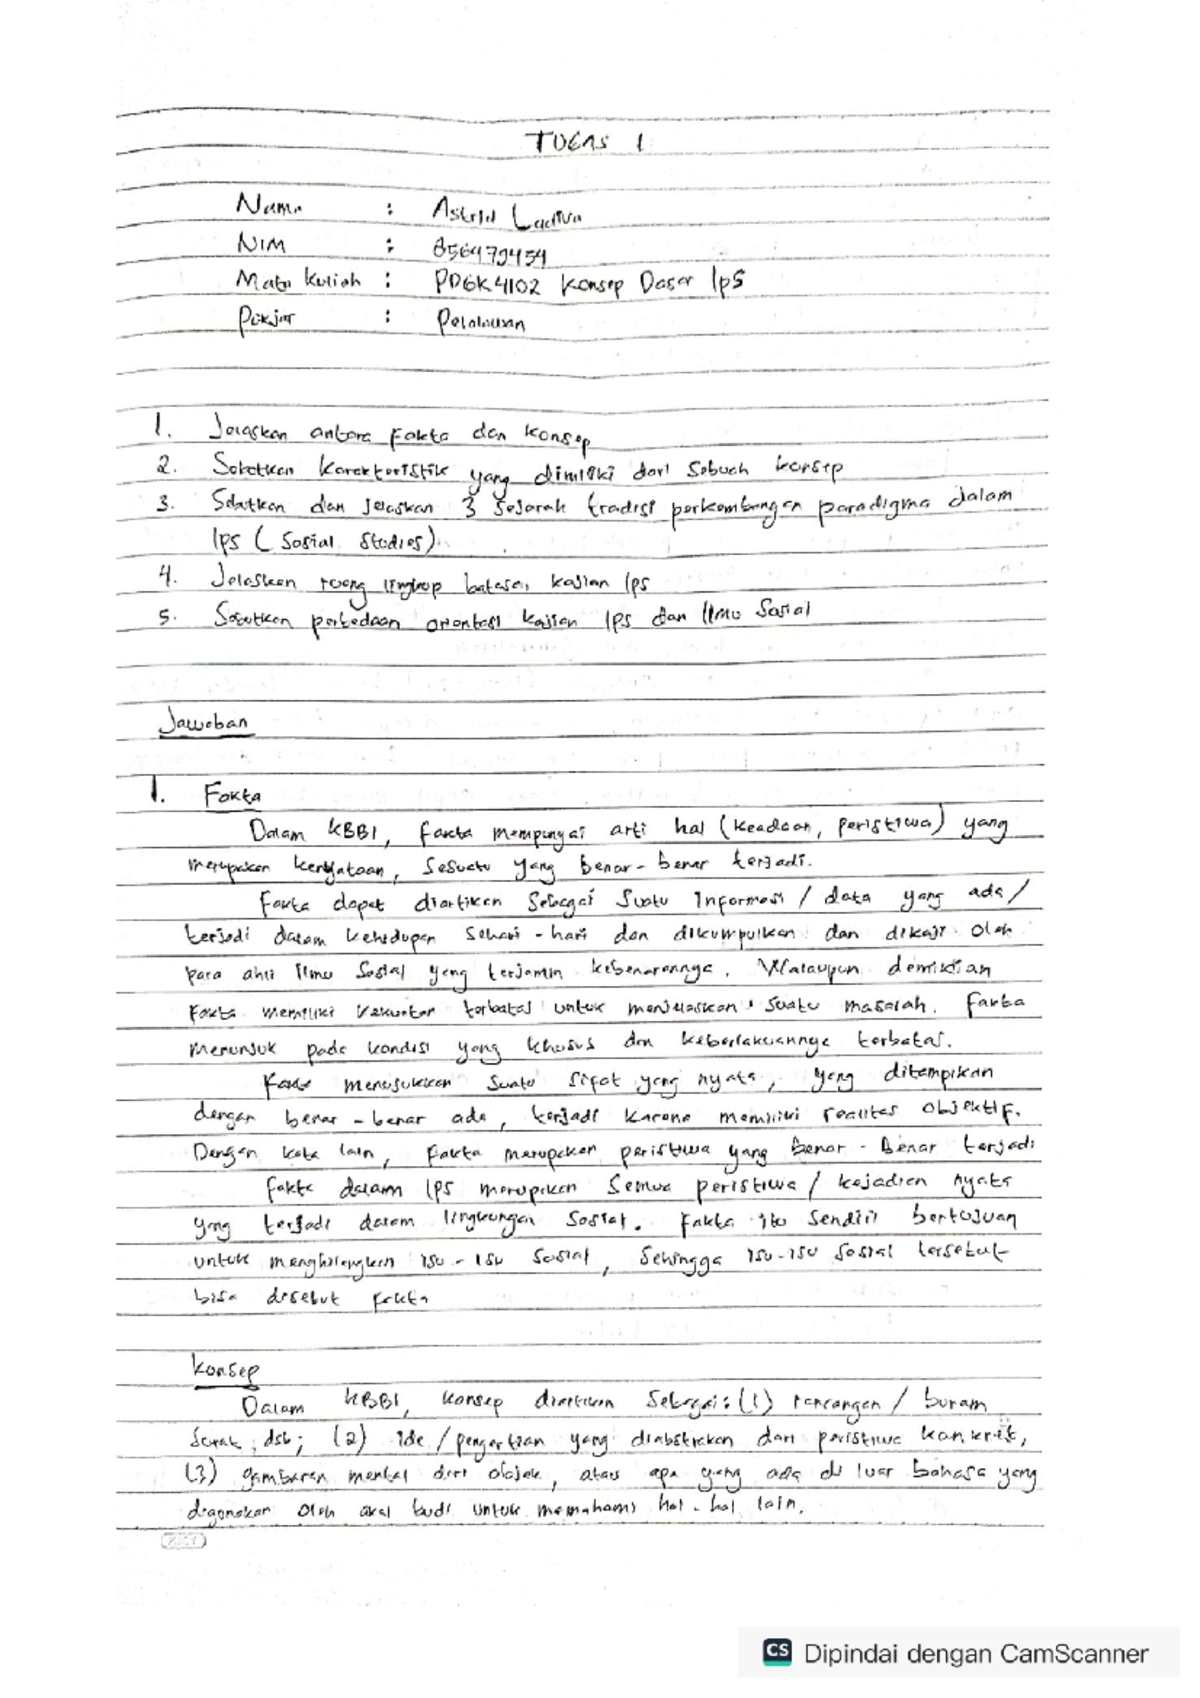 TUGAS 1
Nama : Astrid Ladiva
NIM : 856479454
Mata kuliah : PDGK4102 Konsep Dasar Ips
Pokjar : Pelalawan
1. Jelaskan antara fakta dan konsep
2. Sebutkan karakteristik yang dimiliki dari sebuah konsep
3. Sebutkan dan jelaskan 3 sejarah tradisi perkembangan paradigma dalam
Ips (Sosial Studies).
4. Jelaskan ruang lingkup batasan kajian Ips
5. Sebutkan perbedaan orientasi kajian IPS dan Ilmu Sosial
Jawaban
1. Fakta
Dalam KBBI, fakta mempunyai arti hal (keadaan, peristiwa) yang
merupakan kenyataan, sesuatu yang benar-benar terjadi.
Fakta dapat diartikan sebagai suatu informasi / data yang ada /
terjadi dalam kehidupan sehari-hari dan dikumpulkan dan dikaji oleh
para ahli ilmu sosial yang terjamin kebenarannya. Walaupun demikian
fakta memiliki kekuatan terbatas untuk menjelaskan suatu masalah. Fakta
menunjuk pada kondisi yang khusus dan keberlakuannya terbatas.
Fakta menunjukkan suatu sifat yang nyata, yang ditampikan
dengan benar-benar ada, terjadi karena memiliki realitas objektif.
Dengan kata lain, fakta merupakan peristiwa yang benar-benar terjadi
fakta dalam IPS merupakan semua peristiwa / kejadian nyata
yang terjadi dalam lingkungan sosial. Fakta itu sendiri bertujuan
untuk menghilangkan isu-isu sosial, sehingga isu-isu sosial tersebut
bisa disebut fakta
Konsep
Dalam KBBI, konsep diartikan sebagai: (1) rancangan / buram
surat, dsb; (2) ide / pengertian yang diabstrakan dari peristiwa konkrit,
(3) gambaran mental dari objek, atau apa yang ada di luar bahasa yang
digunakan oleh akal budi untuk memahami hal-hal lain.
CS Dipindai dengan CamScanner